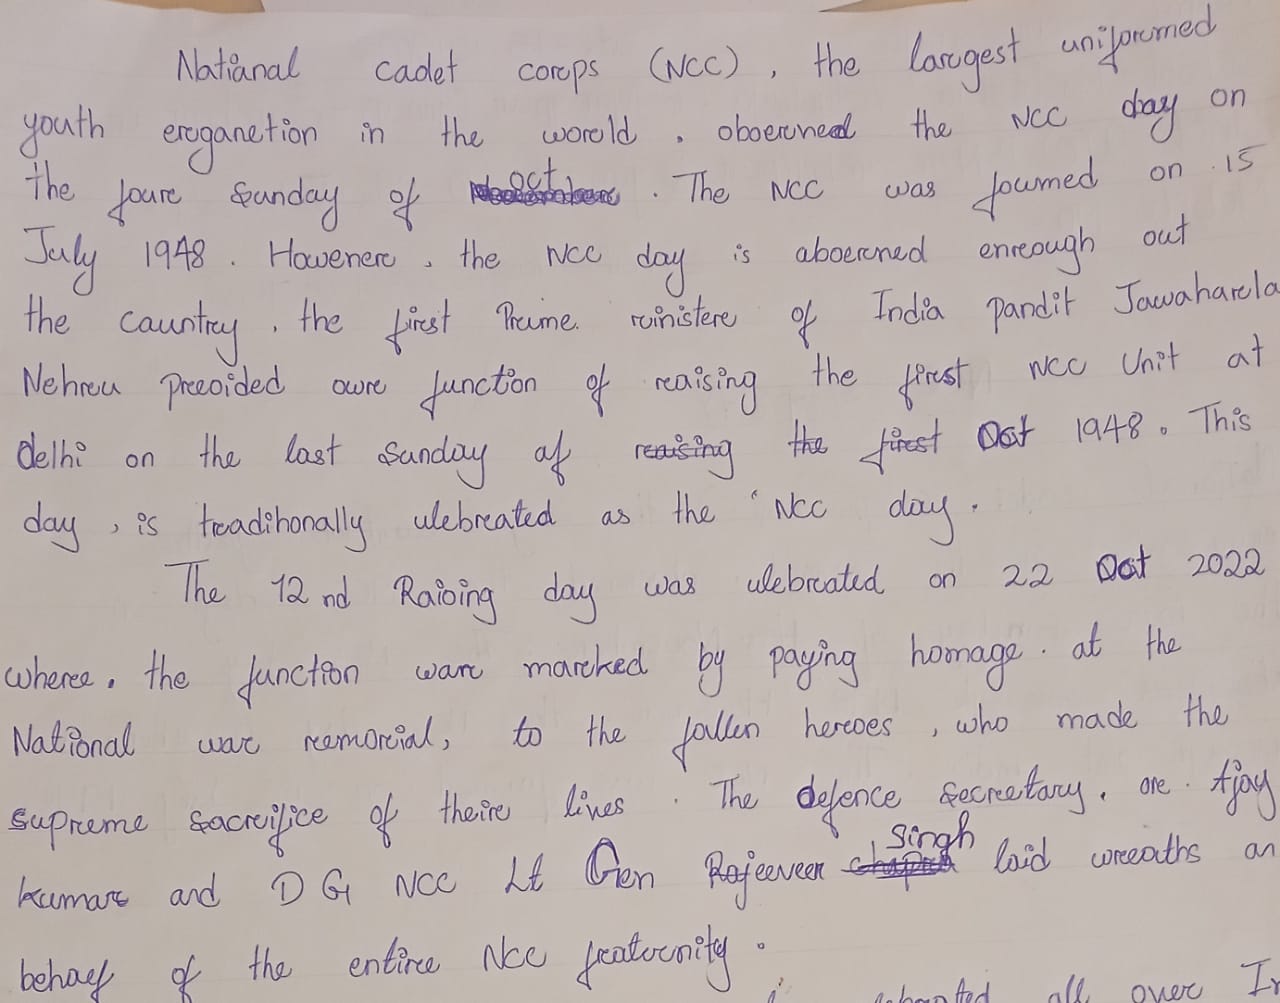 National cadet corps (NCC), the largest uniformed
youth ereganetion in the world, observned the NCC day on
the foure sunday of oct. The NCC was foumed on 15
July 1948. Howenere, the NCC day is aboerned enreough out
the cauntry, the first Prime. ministere of India pandit Jawaharla
Nehreu preoided owre function of reaising the first NCC Unit at
delhi on the last sunday af reaising the first Oct 1948. This
day, is tradihonally ulebreated as the 'NCC day.
The 72 nd Raising day was ulebrated on 22 Oct 2022
wheree, the function ware marcked by paying homage. at the
National war remorcial, to the fallen heroes, who made the
supreme sacreifice of theire lives. The defence secreetary, are. Ajay
kumar and DG NCC Lt Gen Rajeeveer singh laid wreaths an
behaef of the entiree Ncc fraternity.
all over In